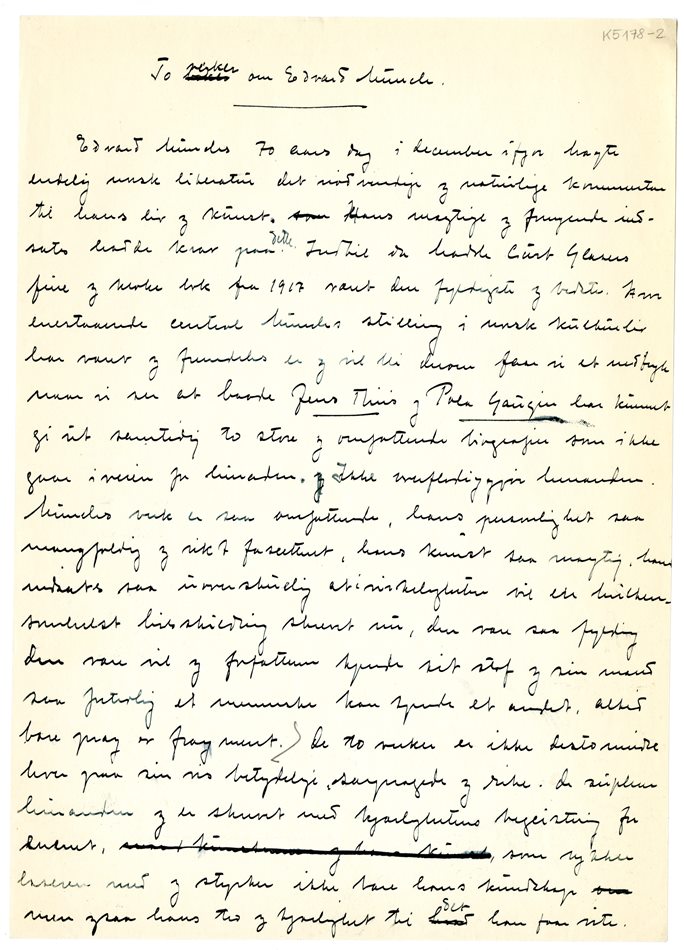 K5178-2
To verker om Edvard Munch.
Edvard Munchs 70 aars dag i december ifjor bragte
endelig norsk literatur det nødvendige og naturlige kommentar
til hans liv og kunst. Hans mægtige og fengende ind-
sats hadde krav paa dette. Indtil da hadde Curt Glasers
fine og kloke bok fra 1917 været den fyldigste og bedste. Hvor
enestaaende central Munchs stilling i norsk kulturliv
har været og fremdeles er og vil bli derom faar vi et indtryk
naar vi ser at baade Jens Thiis og Pola Gauguin har kunnet
gi ut samtidig to store og omfattende biografier som ikke
gaar i veien for hinanden. Ikke overflødiggjør hinanden.
Munchs verk er saa omfattende, hans personlighet saa
mangfoldig og rikt facettert, hans kunst saa mægtig, hans
indsats saa uoverskuelig at virkeligheten vil en hvilken-
somhelst livsskildring skrevet nu, den være saa fyldig
den være vil og forfatteren kjende sit stof og sin mand
saa fortrolig et menneske kan kjende et andet, altid
bare præg av fragment. De to verker er ikke destomindre
hver paa sin vis betydelige, særprægede og rike. De suplerer
hinanden og er skrevet med kjærlighetens begeistring for
emnet, som rykker
læseren med og styrker ikke bare hans kundskap
men ogsaa hans tro og kjærlighet til det han faar vite.